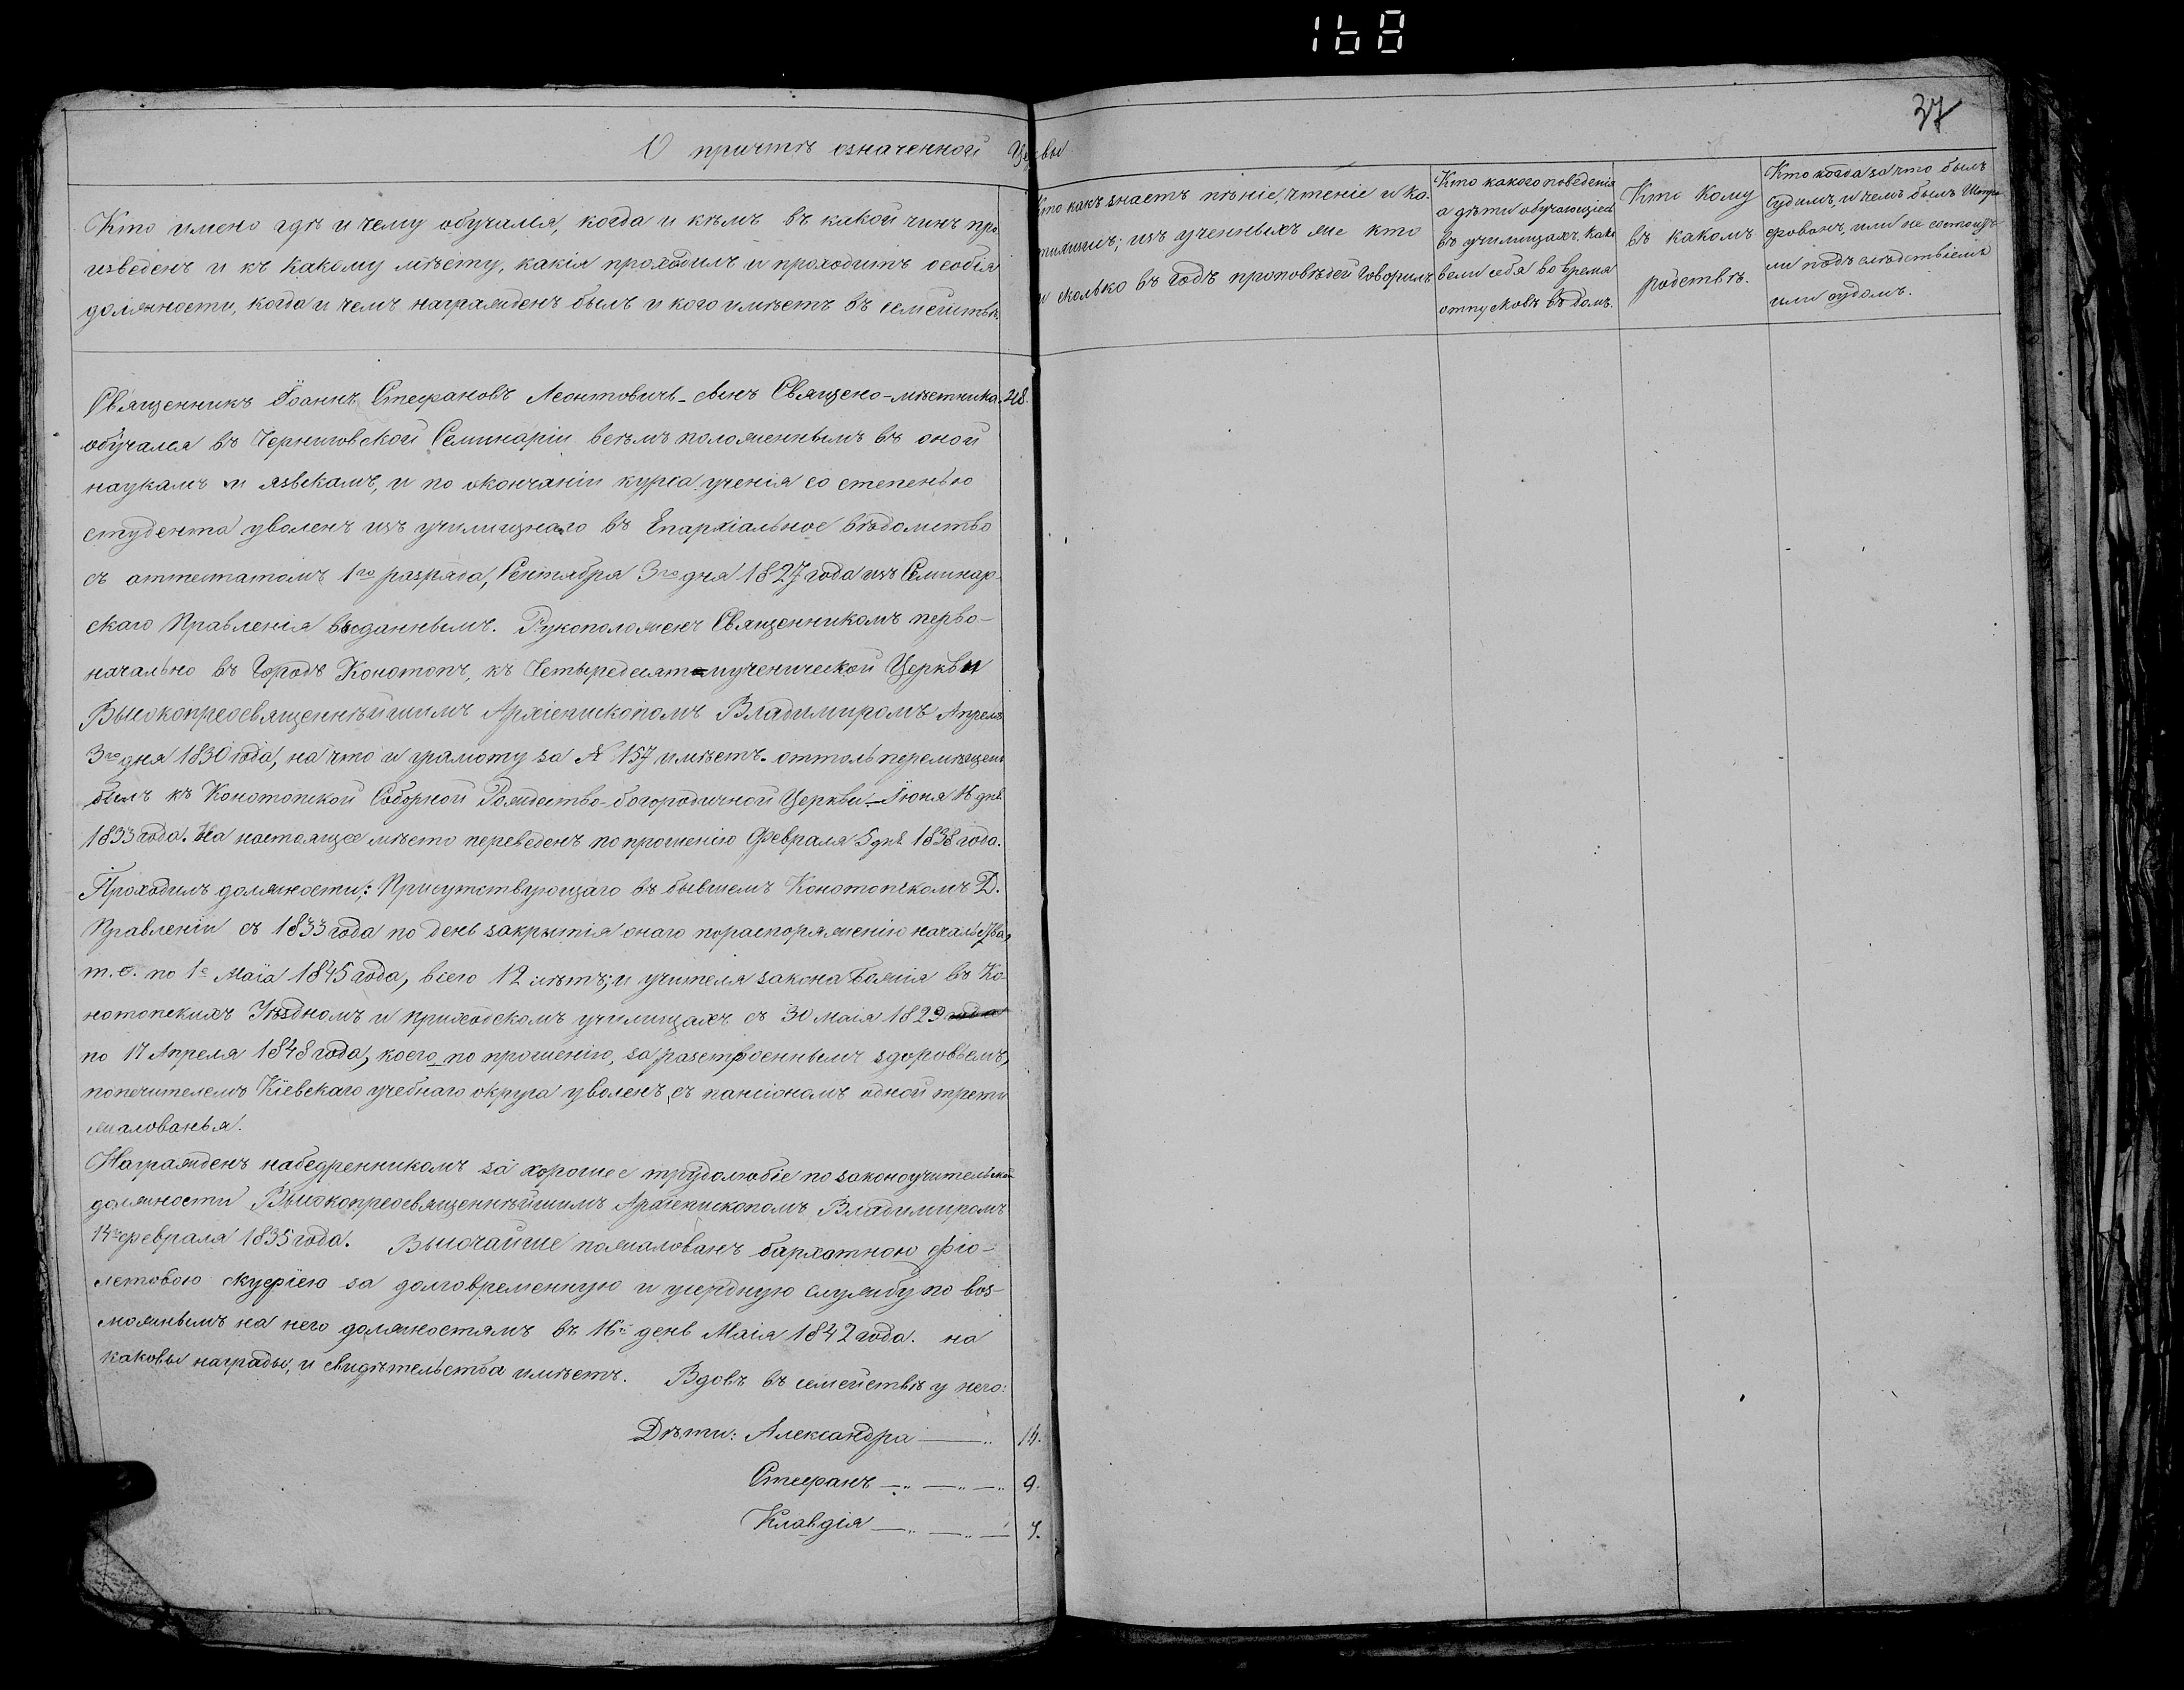 168
37
О причтѣ означенной Церквы
Кто имено гдѣ и чему обучался, когда и кѣмъ въ какой чинъ про-
изведенъ и къ какому мѣсту, какія проходилъ и проходитъ особія
должности, когда и чемъ награжденъ былъ и кого имѣетъ въ семействѣ.
Кто какъ знаетъ пѣніе, чтеніе и ка-
тихизисъ; изъ ученныхъ же кто
и сколько въ годъ проповѣдей говорилъ
Кто какого поведенія
а дѣти обучающіеся
въ училищахъ, какъ
вели себя во время
отпусковъ въ домъ.
Кто кому
въ какомъ
родствѣ.
Кто когда за что былъ
судимъ, и чемъ былъ штра-
фованъ, или не состоитъ
ли подъ слѣдствіемъ
или судомъ.
Священникъ Іоаннъ Стефановъ Леонтовичъ - сынъ Священо-мѣстника. 48.
обучался въ Черниговской Семинаріи всѣмъ положеннымъ въ оной
наукамъ и языкамъ, и по окончаніи курса ученія со степенью
студента уволенъ изъ училищнаго въ Епархіальное вѣдомство
съ аттестатомъ 1го разряда, Сентября 3го дня 1827 года изъ Семинар-
скаго Правленія выданнымъ. Рукоположенъ Священникомъ перво-
начально въ городъ Конотопъ, къ Четыредесятомученической Церкви
Высокопреосвященнѣйшимъ Архіепископомъ Владимиромъ Апреля
3го дня 1830 года, на что и грамоту за № 157 имѣетъ. оттоль перемѣщенъ
былъ къ Конотопской Соборной Рождество-богородичной Церкви - Іюня 16 дня
1833 года. На настоящее мѣсто переведенъ по прошенію Февраля 5 дня 1838 года.
Проходилъ должности: Присутствующаго въ бывшемъ Конотопскомъ Д.
Правленіи съ 1833 года по день закрытія онаго по распоряженію начальства,
т. е. по 1е Маія 1845 года, всего 12 лѣтъ; и учителя закона Божія въ Ко-
нотопскихъ Уѣздномъ и приходскомъ училищахъ съ 30 Маія 1829 года
по 17 Апреля 1848 года, коего по прошенію, за разстроеннымъ здоровьемъ,
попечителемъ Кіевскаго учебнаго округа уволенъ, съ пансіономъ одной трети
жалованья.
Награжденъ набедренникомъ за хорошее трудолюбіе по законоучительской
должности Высокопреосвященнѣйшимъ Архіепископомъ Владимиромъ
14го февраля 1835 года. Высочайше пожалованъ бархатною фіо-
летовою скуфіею за долговременную и усердную службу по воз-
можнымъ на него должностямъ въ 16й день Маія 1842 года. на
каковы награды, и свидѣтельства имѣетъ. Вдовъ въ семействѣ у него:
Дѣти: Александра 16.
Стефанъ 9.
Клавдія 7.